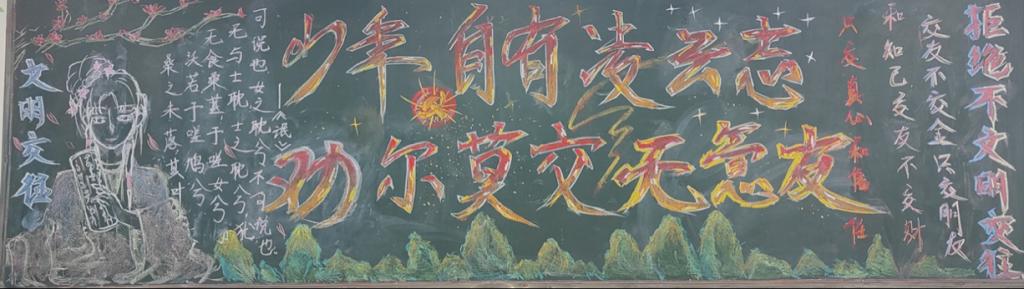 少年自有凌云志
劝尔莫交无怠友
拒绝不文明交往
交友不交金只交明友
和知己交友不交财
只交真心和
文明交往
可说也女之耽兮不可说也
——《氓》
无与士耽士之耽兮
无食桑葚于嗟女兮
沃若于嗟鸠兮
桑之未落其叶